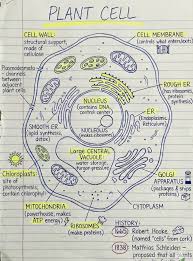 PLANT CELL
CELL WALL:
structural support,
made of
cellulose
CELL MEMBRANE
(controls what enters/exits)
Plasmodesmata
- channels
between
adjacent plant
cells
ROUGH ER
NUCLEUS
(contains DNA,
control center)
ER.
(Endoplasmic
Reticulum)
NUCLEOLUS
(makes ribosomes)
Smooth ER
(lipid
Large CENTRAL
VACUOLE:
water storage,
turgor pressure
Chloroplasts:
site of
photosynthesis,
contain chlorophyll
GOLGI
APPARATUS
(packages & ships
proteins)
MITOCHONDRIA
(powerhouse, makes
ATP energy)
RIBOSOMES
(make proteins)
CYTOPLASM
HISTORY:
1665 Robert Hooke,
(named "cells" from cork)
1838 Matthias Schleiden -
proposed that all plants